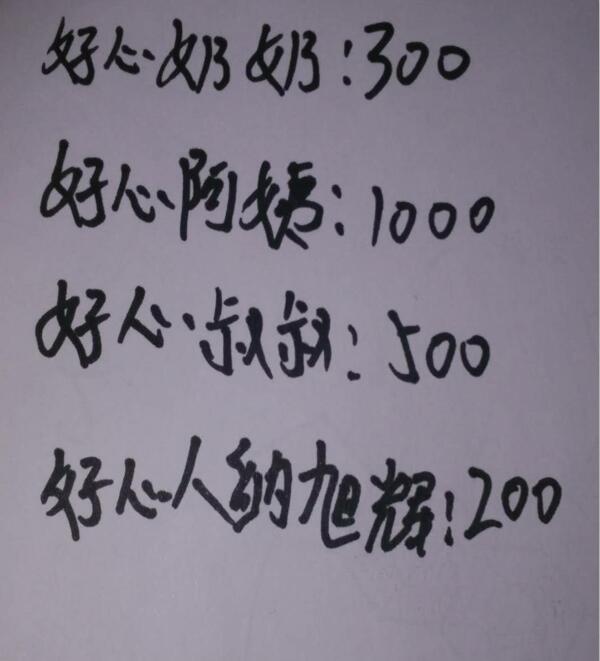 好心奶奶:300
好心阿姨:1000
好心叔叔:500
好心人纳旭辉:200